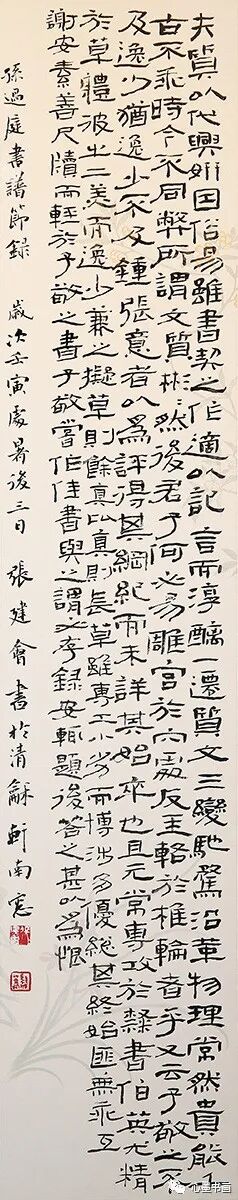 夫質以代興妍因俗易雖書契之作適以記言而淳醨一遷質文三變馳騖沿革物理常然貴能
古不乖時今不同弊所謂文質彬〻然後君子何必易雕宮於穴處反玉輅於椎輪者乎又云子敬之不
及逸少猶逸少不及鍾張意者以爲評得其綱紀而未詳其始卒也且元常專攻於隸書伯英尤精
於草體彼之二美而逸少兼之擬草則餘真比真則長草雖專工小劣而博涉多優總其終始匪無乖互
謝安素善尺牘而輕於子敬之書子敬嘗作佳書與之謂必存錄安輒題後答之甚以爲恨
孫過庭書譜節錄 歲次壬寅處暑後三日 張建會書於清龢軒南窓